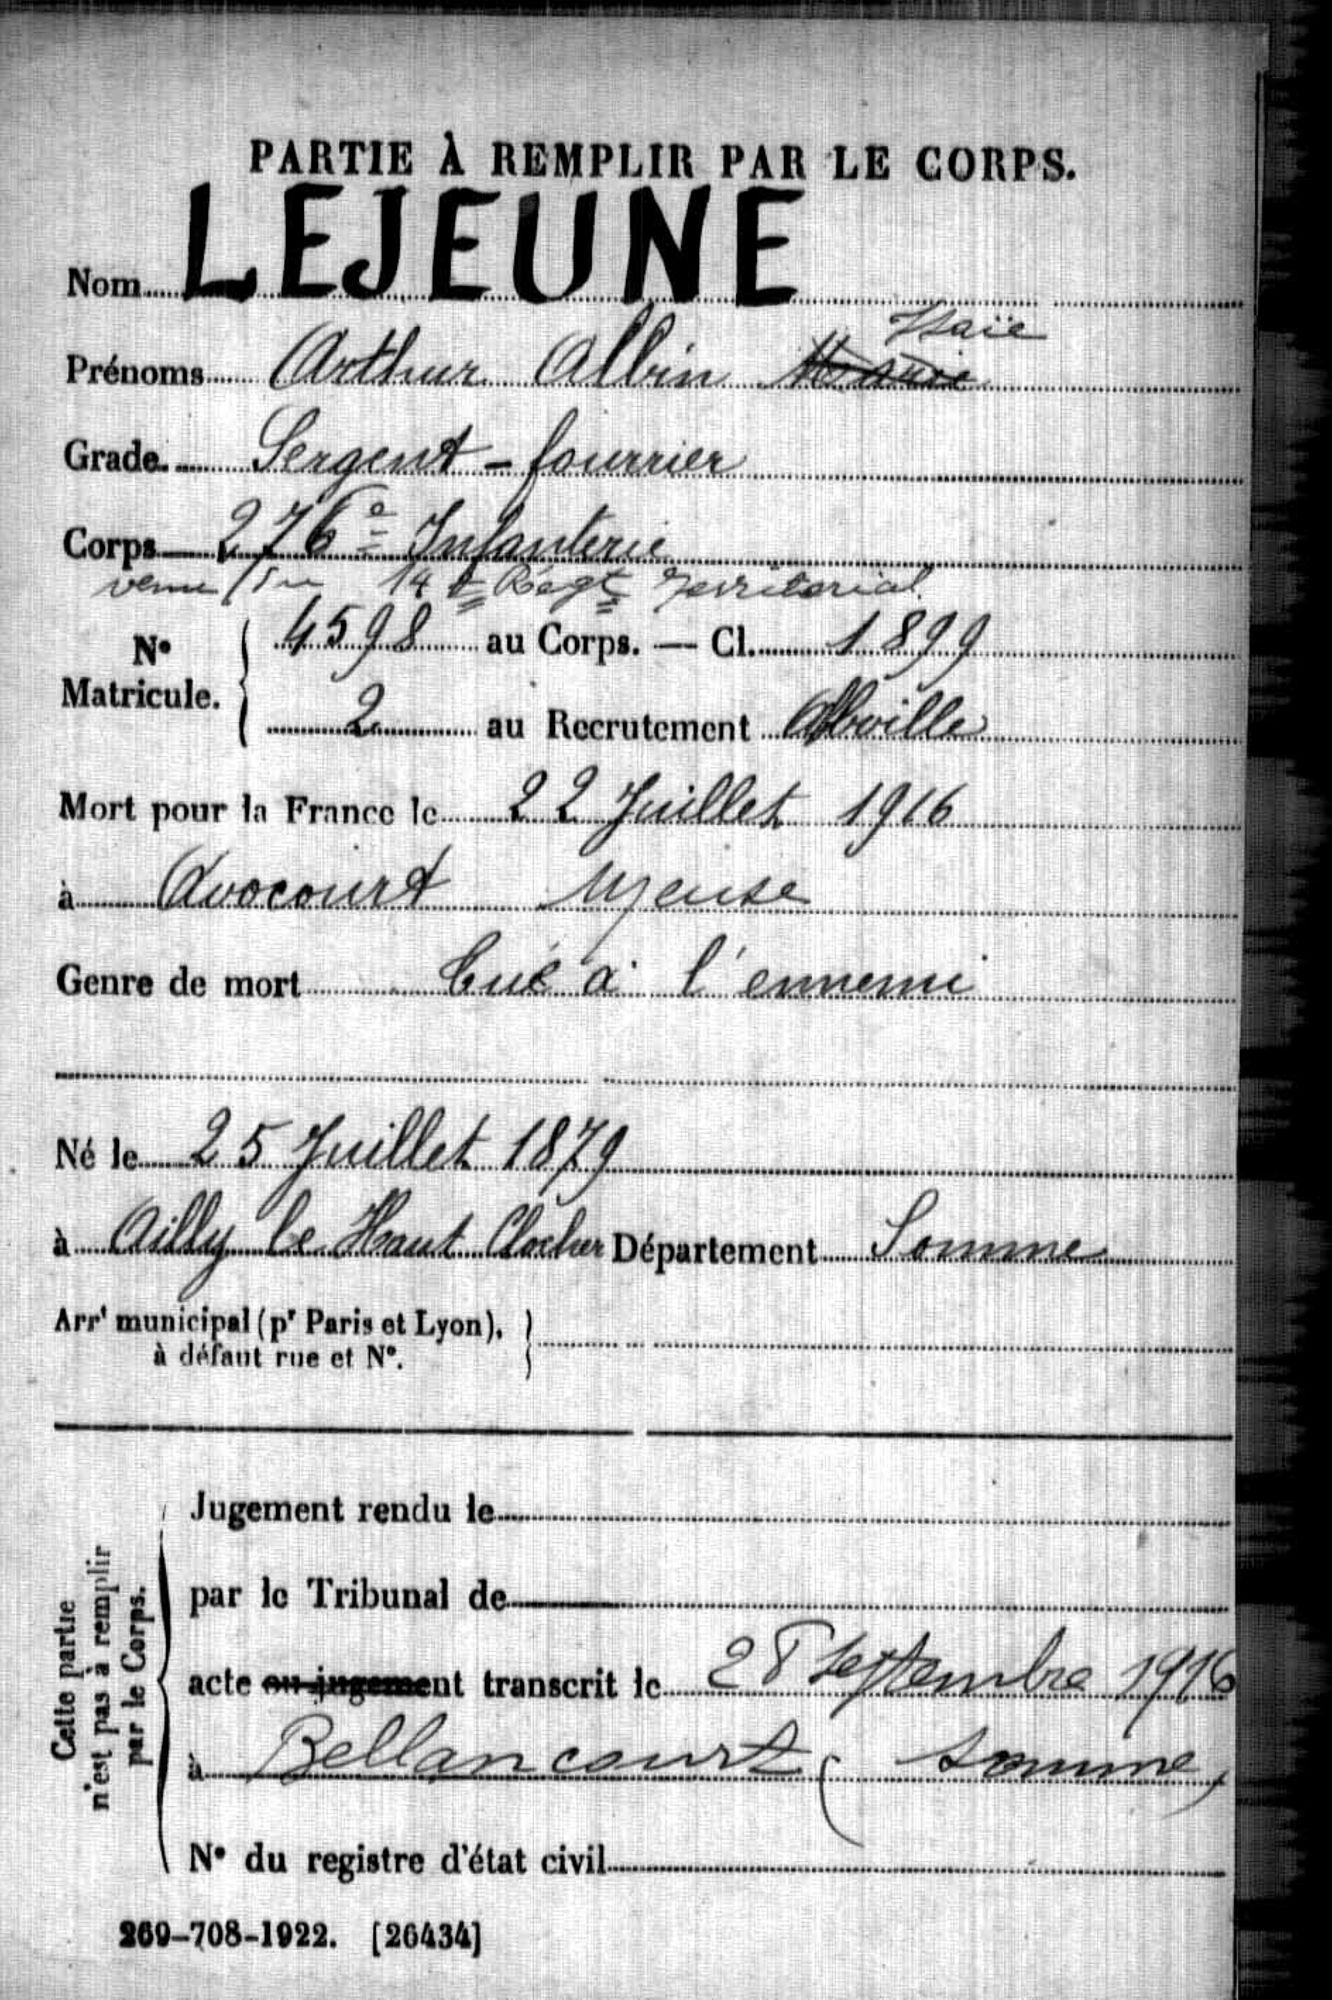 PARTIE À REMPLIR PAR LE CORPS.
Nom LEJEUNE
Isaïe
Prénoms Arthur Albin
Grade. Sergent-fourrier
Corps 276e Infanterie
venu du 14e Régt territorial
4598 au Corps. — Cl. 1899
N° Matricule.
2 au Recrutement Abbville
Mort pour la France le 22 Juillet 1916
à Avocourt Meuse
Genre de mort tué à l'ennemi
Né le 25 Juillet 1879
à Ailly le Haut Clocher Département Somme
Arrt municipal (pr Paris et Lyon),
à défaut rue et N°.
Cette partie
n'est pas à remplir
par le Corps.
Jugement rendu le
par le Tribunal de
acte ou jugement transcrit le 28 Septembre 1916
à Bellancourt (Somme)
N° du registre d'état civil
269-708-1922. [26434]